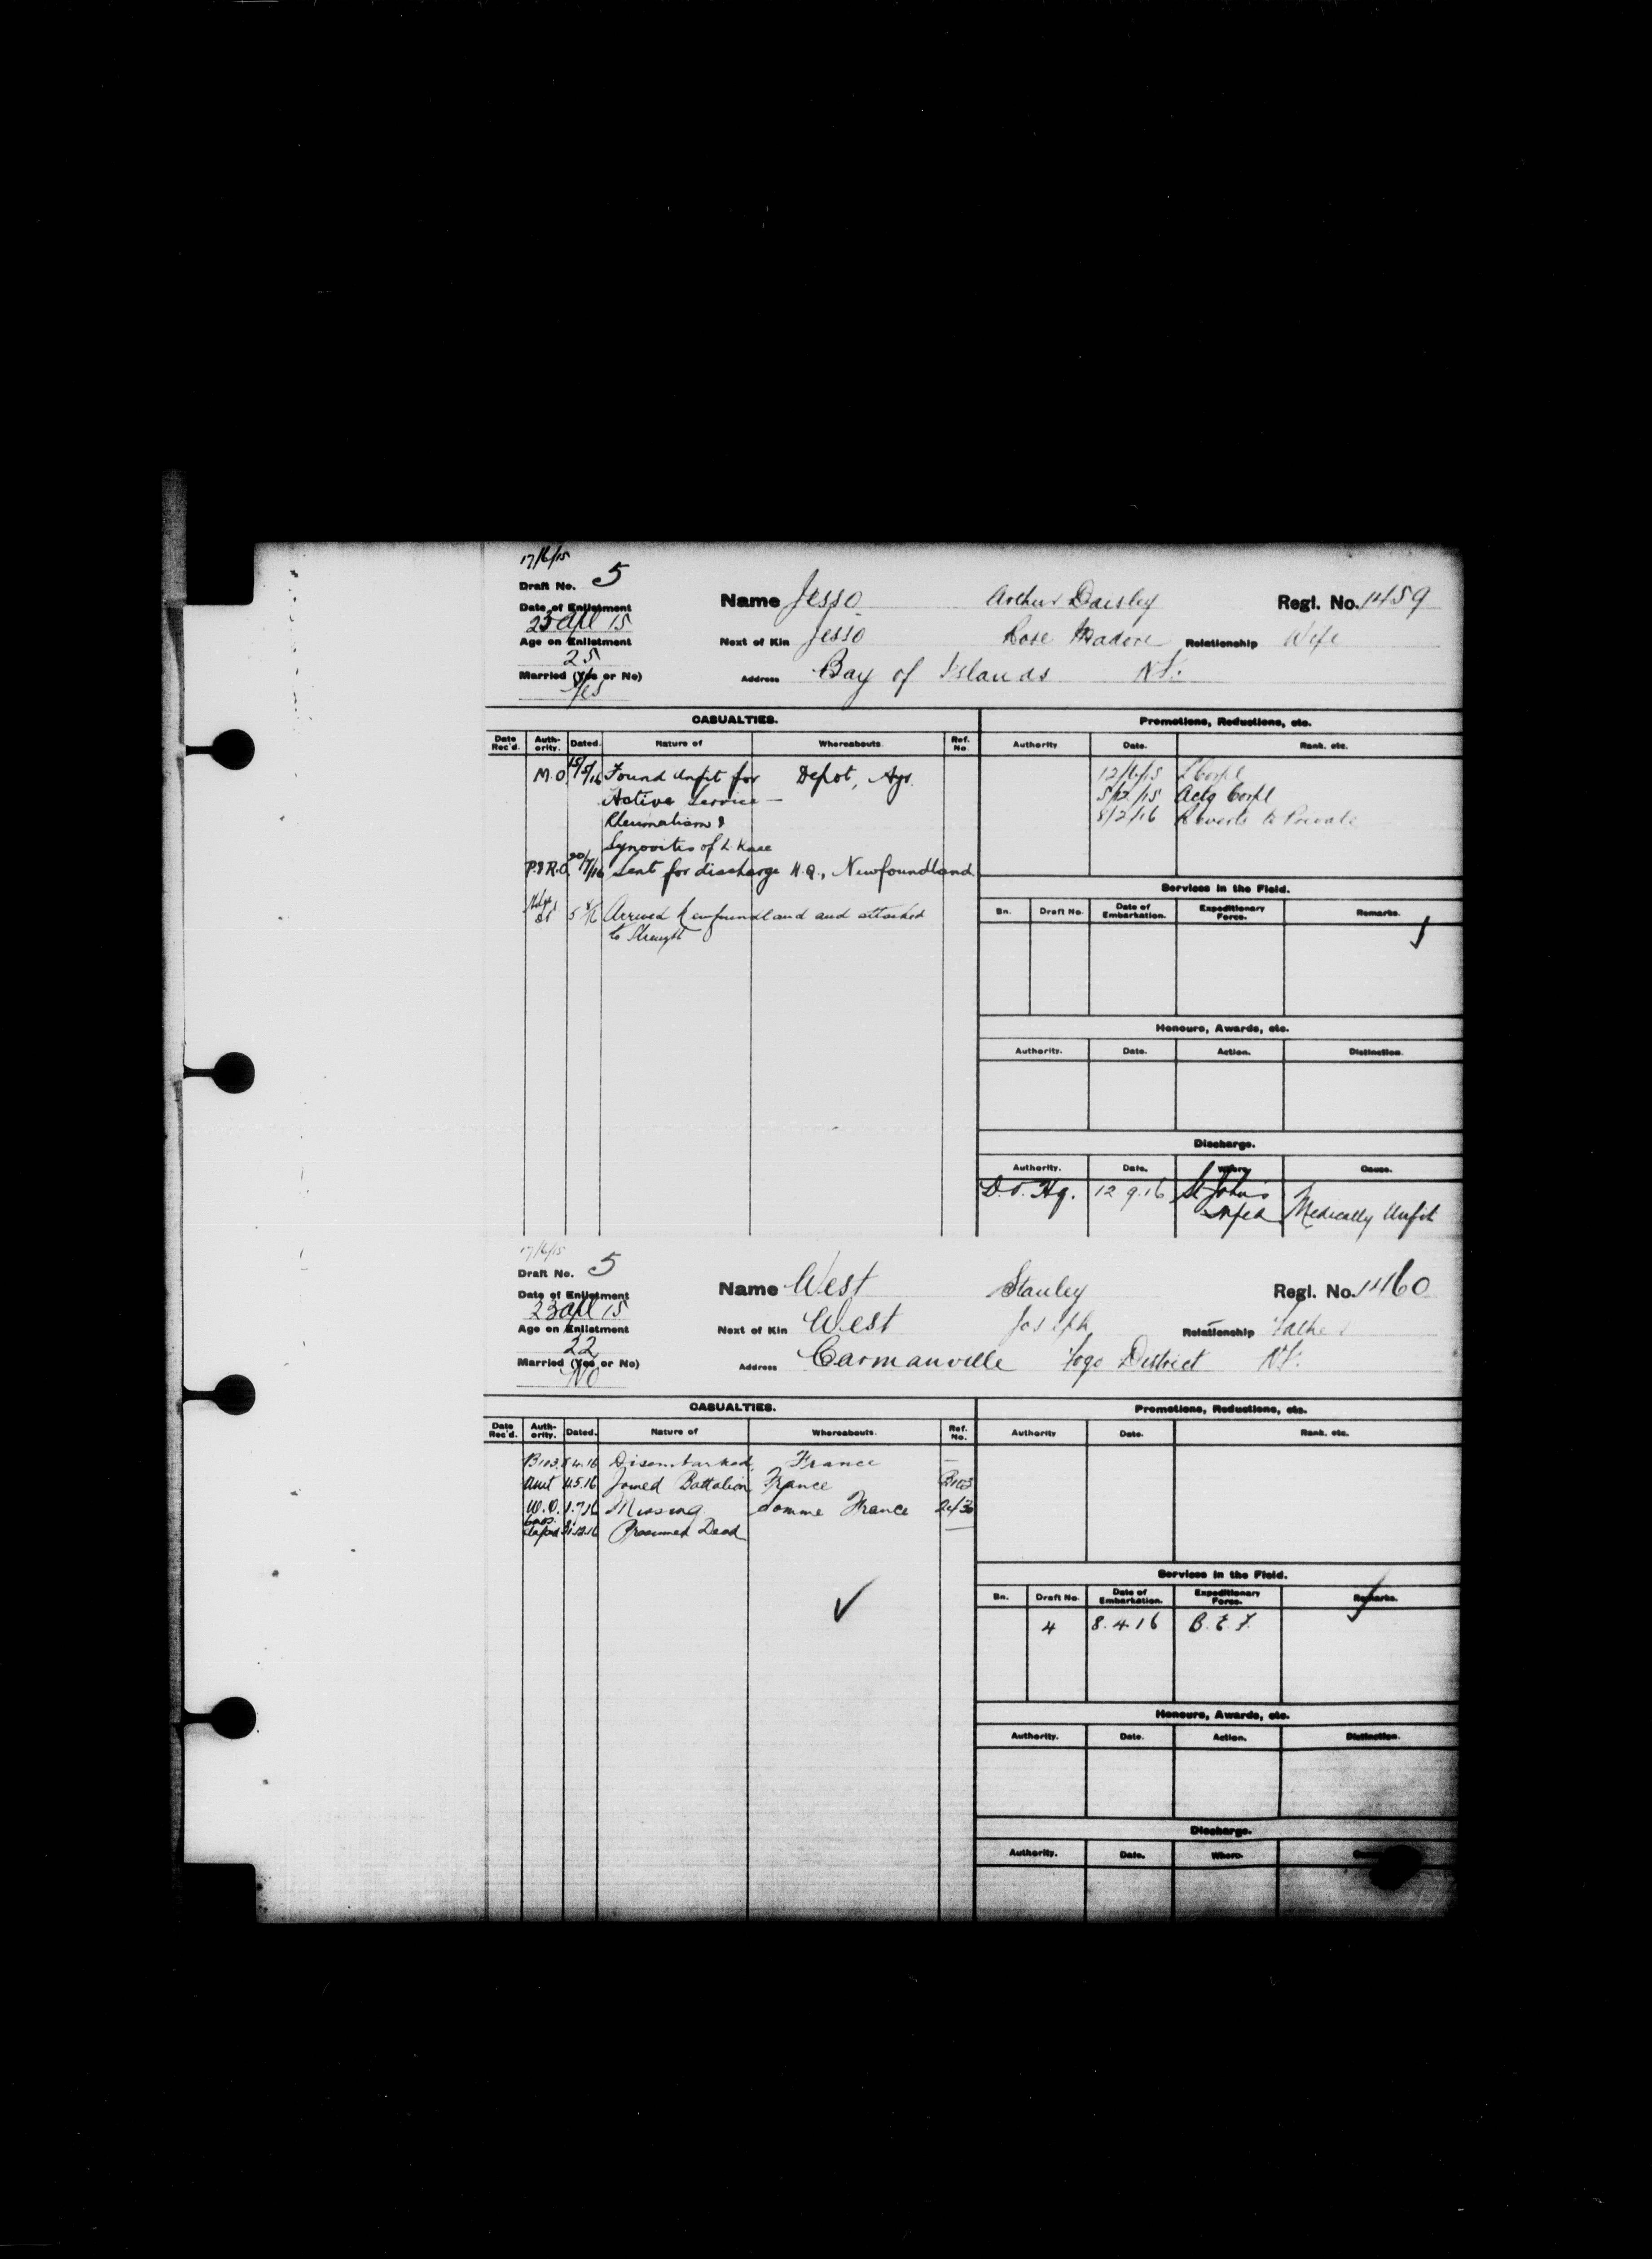 17/6/15
Draft No. 5
Name Jesso Arthur Daisley Regl. No. 1459
Date of Enlistment
23 apl 15
Next of Kin Jesso Rose Madore Relationship Wife
Age on Enlistment
25
Address Bay of Islands N.F.
Married (Yes or No)
Yes
CASUALTIES.
Date Rec'd. Auth-ority. Dated. Nature of Whereabouts. Ref. No.
M.O. 15/5/16 Found unfit for Depot, Ayr.
Active Service —
Rheumatism &
Synovitis of L. Knee
P.&R.O. 20/7/16 Sent for discharge H.Q., Newfoundland
5 Arrived Newfoundland and attached
to Strength
Promotions, Reductions, etc.
Authority Date. Rank, etc.
12/6/15 L Corpl
5/12/15 Actg Corpl
8/2/16 Reverts to Private
Services in the Field.
Bn. Draft No. Date of Embarkation. Expeditionary Force. Remarks.
Honours, Awards, etc.
Authority. Date. Action. Distinction.
Discharge.
Authority. Date. Where. Cause.
D.O. Hq. 12.9.16 St John's Nfld Medically Unfit
17/6/15
Draft No. 5
Name West Stanley Regl. No. 1460
Date of Enlistment
23 apl 15
Next of Kin West Joseph Relationship Father
Age on Enlistment
22
Address Carmanville Fogo District N.F.
Married (Yes or No)
No
CASUALTIES.
Date Rec'd. Auth-ority. Dated. Nature of Whereabouts. Ref. No.
B103 8.4.16 Disembarked France
Unit 4.5.16 Joined Battalion France B103
W.O. 1.7.16 Missing Somme France 2430
31.12.16 Presumed Dead
Promotions, Reductions, etc.
Authority Date. Rank, etc.
Services in the Field.
Bn. Draft No. Date of Embarkation. Expeditionary Force. Remarks.
4 8.4.16 B.E.F.
Honours, Awards, etc.
Authority. Date. Action. Distinction.
Discharge.
Authority. Date. Where.